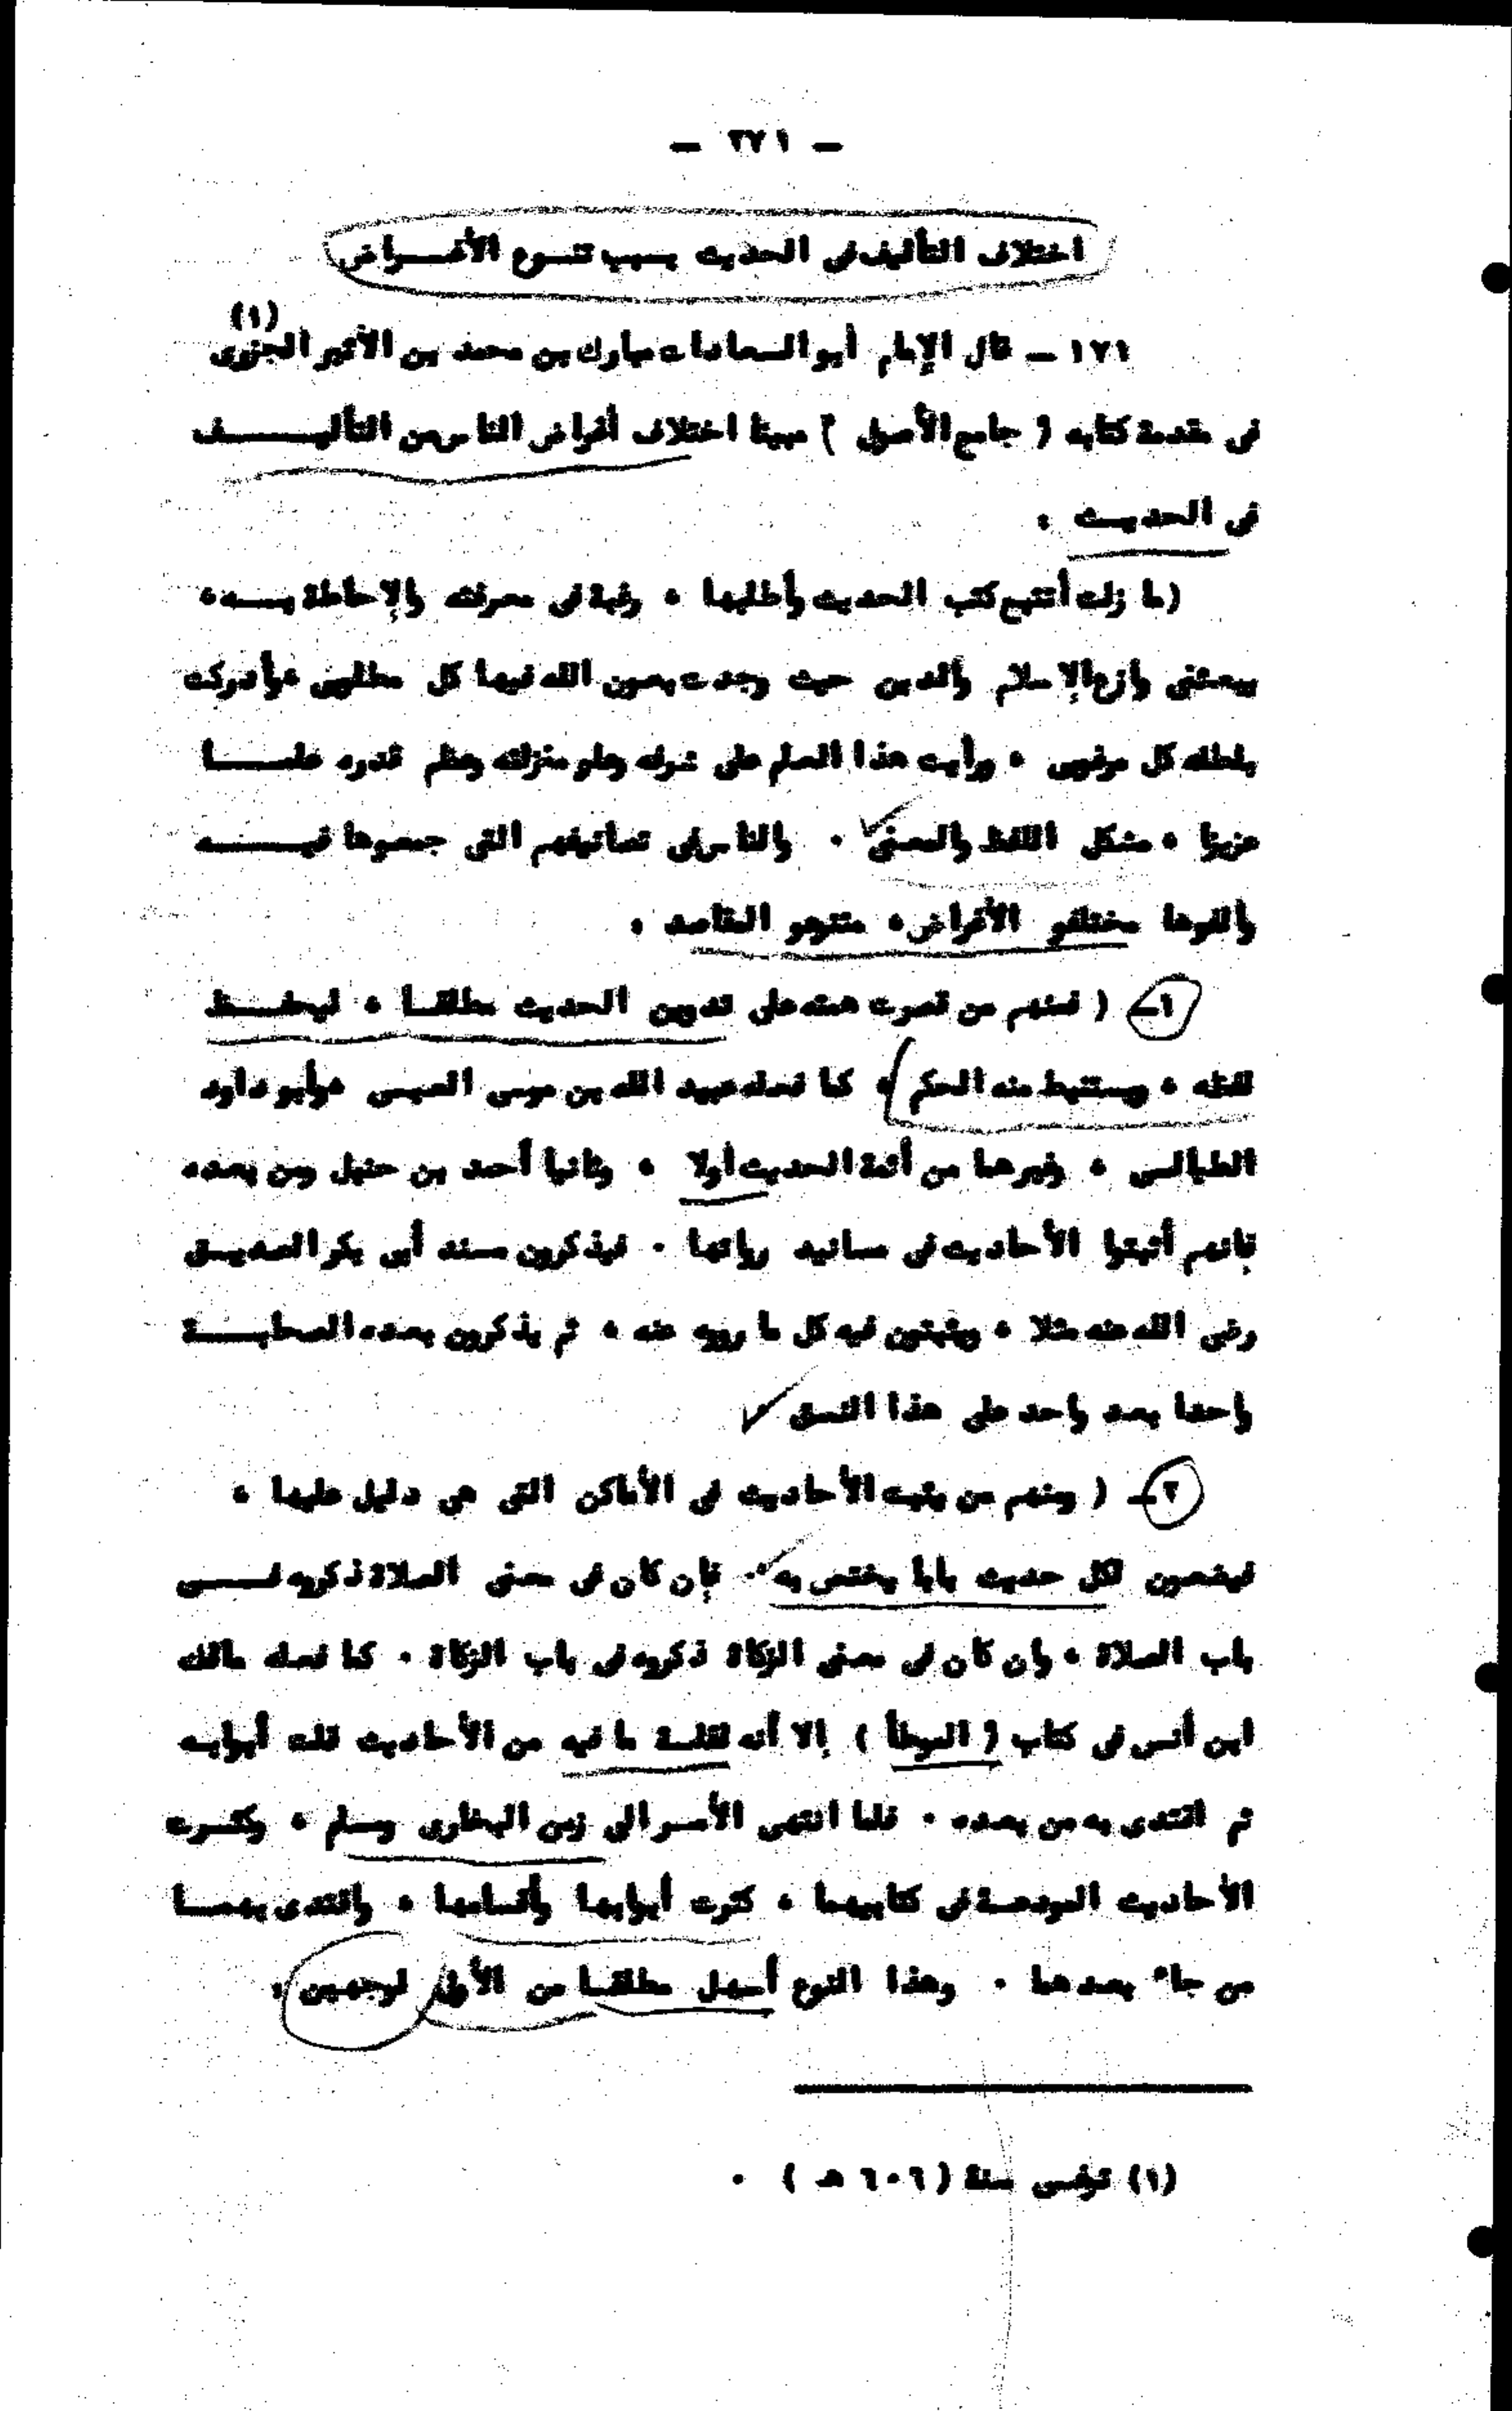 — ٢٧١ —
اختلاف التأليف في الحديث بسبب تنوع الأغراض
١٧١ — قال الإمام أبو السعادات مبارك بن محمد بن الأثير الجزرى (١)
في مقدمة كتابه ( جامع الأصول ) مبينا اختلاف أغراض الناس من التأليف
في الحديث :
(ما زلت أتتبع كتب الحديث وأطلبها ، رغبة في معرفته والإحاطة به ،
يبعثني وازع الإسلام والدين حيث وجدت بعون الله فيها كل مطلوب ، وأدركت
بلطفه كل مرغوب ، ورأيت هذا العلم على شرفه وعلو منزلته وعظم قدره علما
عزيزا ، مشكل اللفظ والمعنى . والناس في تصانيفهم التي جمعوها فيه
وألفوها مختلفو الأغراض ، متنوعو المقاصد .
١ـ ( فمنهم من قصرت همته على تدوين الحديث مطلقا ، ليحفظ
لفظه ، ويستنبط منه الحكم ، كما فعله عبيد الله بن موسى العبسى ، وأبو داود
الطيالسى ، وغيرهما من أئمة الحديث أولا ، وثانيا أحمد بن حنبل ومن بعده
فإنهم أثبتوا الأحاديث في مسانيد رواتها . فيذكرون مسند أبى بكر الصديق
رضى الله عنه مثلا ، ويثبتون فيه كل ما رووه عنه ، ثم يذكرون بعده الصحابة
واحدا بعد واحد على هذا النسق
٢ـ ( ومنهم من يثبت الأحاديث في الأماكن التي هى دليل عليها ،
فيضعون لكل حديث بابا يختص به . فإن كان في معنى الصلاة ذكروه فى
باب الصلاة ، وان كان في معنى الزكاة ذكروه في باب الزكاة . كما فعله مالك
ابن أنس في كتاب ( الموطأ ) إلا أنه لقلة ما فيه من الأحاديث قلت أبوابه
ثم اقتدى به من بعده . فلما انتهى الأمر الى زمن البخارى ومسلم ، وكثرت
الأحاديث المودعة في كتابيهما ، كثرت أبوابها وأقسامها ، واقتدى بهما
من جاء بعدهما . وهذا النوع أسهل مطلقا من الأول لوجهين :
(١) توفى سنة (٦٠٦ هـ ) .